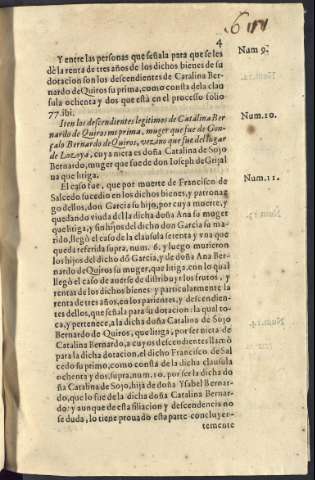 4
Y entre las personas que señala para que se les
dè la renta de tres años de los dichos bienes de su
dotacion son los descendientes de Catalina Ber
nardo de Quiros su prima, como consta de la clau
sula ochenta y dos que está en el processo folio
77. ibi.
Iten los descendientes legitimos de Catalina Ber
nardo de Quiros mi prima, muger que fue de Gon-
çalo Bernardo de Quiros, vezino que fue del lugar
de Lozoya, cuya nieta es doña Catalina de Sojo
Bernardo, muger que fue de don Ioseph de Grijal
ua que litiga.
El caso fue, que por muerte de Francisco de
Salcedo sucedio en los dichos bienes, y patronaz-
go dellos, don Garcia su hijo, por cuya muerte, y
quedando viuda della dicha doña Ana su muger
que litiga, y sin hijos del dicho don Garcia su ma-
rido, llegò el caso de la clausula setenta y vna que
queda referida supra, num. 6. y luego murieron
los hijos del dicho dõ Garcia, y de doña Ana Ber-
nardo de Quiros su muger, que litiga, con lo qual
llegò el caso de auerse de distribuyr los frutos, y
rentas de los dichos bienes y particularmente la
renta de tres años, en los parientes, y descendien-
tes dellos, que señala para su dotacion: la qual to-
ca, y pertenece, a la dicha doña Catalina de Sojo
Bernardo de Quiros, que litiga, por ser nieta de
Catalina Bernardo, a cuyos descendientes llamò
para la dicha dotacion, el dicho Francisco de Sal
cedo su primo, como consta de la dicha clausula
ochenta y dos, supra, num. 10. por ser la dicha do
ña Catalina de Sojo, hija de doña Ysabel Bernar-
do, que lo fue de la dicha doña Catalina Bernar-
do: y aunque de esta filiacion y descendencia no
se duda, lo tiene prouado esta parte concluyen-
temente
Num 9.
Num. 10.
Num. 11.